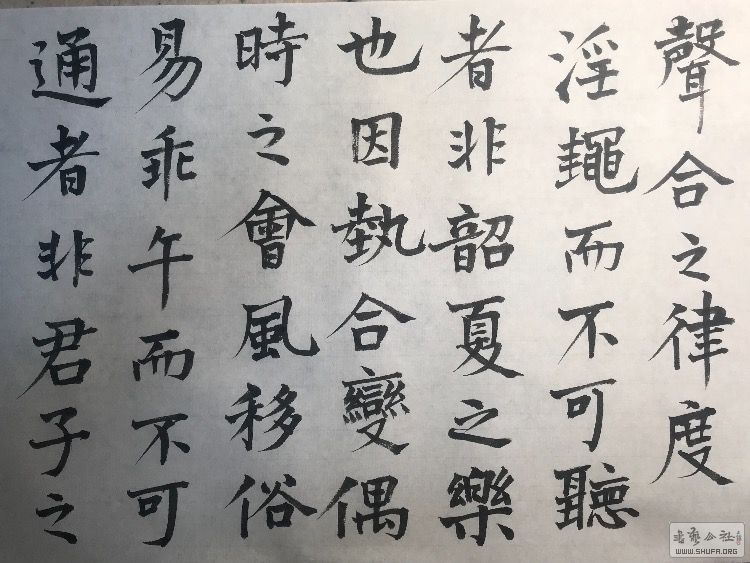 聲合之律度
淫䵷而不可聽
者非韶夏之樂
也因埶合變偶
時之會風移俗
易乖午而不可
通者非君子之
书艺公社
WWW.SHUFA.ORG